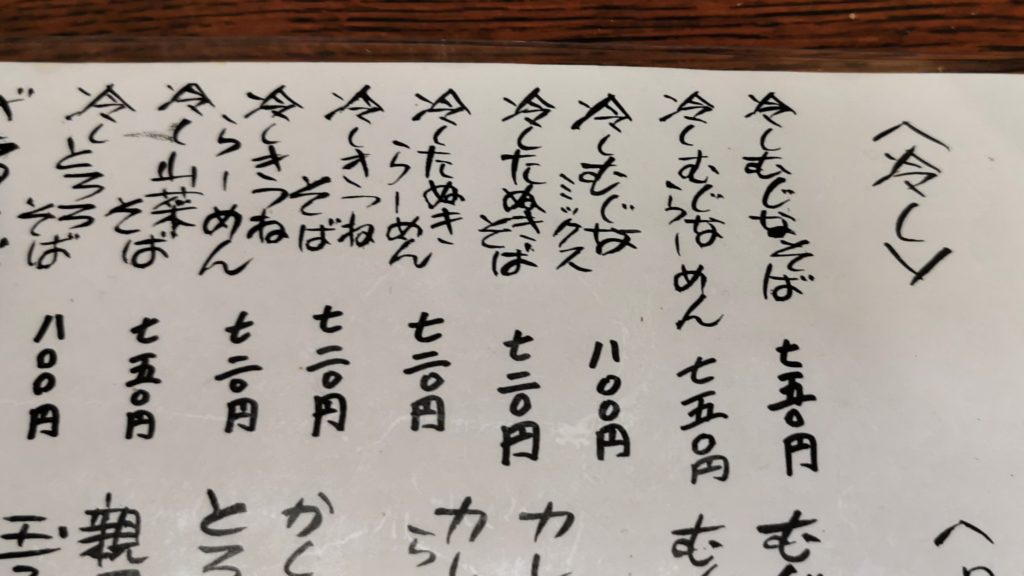 〈冷し〉
冷しむじなそば 七五〇円
冷しむじならーめん 七五〇円
冷しむじなミックス 八〇〇円
冷したぬきそば 七二〇円
冷したぬきらーめん 七二〇円
冷しきつねそば 七二〇円
冷しきつねらーめん 七二〇円
冷し山菜そば 七五〇円
冷しとろろそば 八〇〇円
むじ
むじ
カレ
カレ
ら
かし
とろ
親